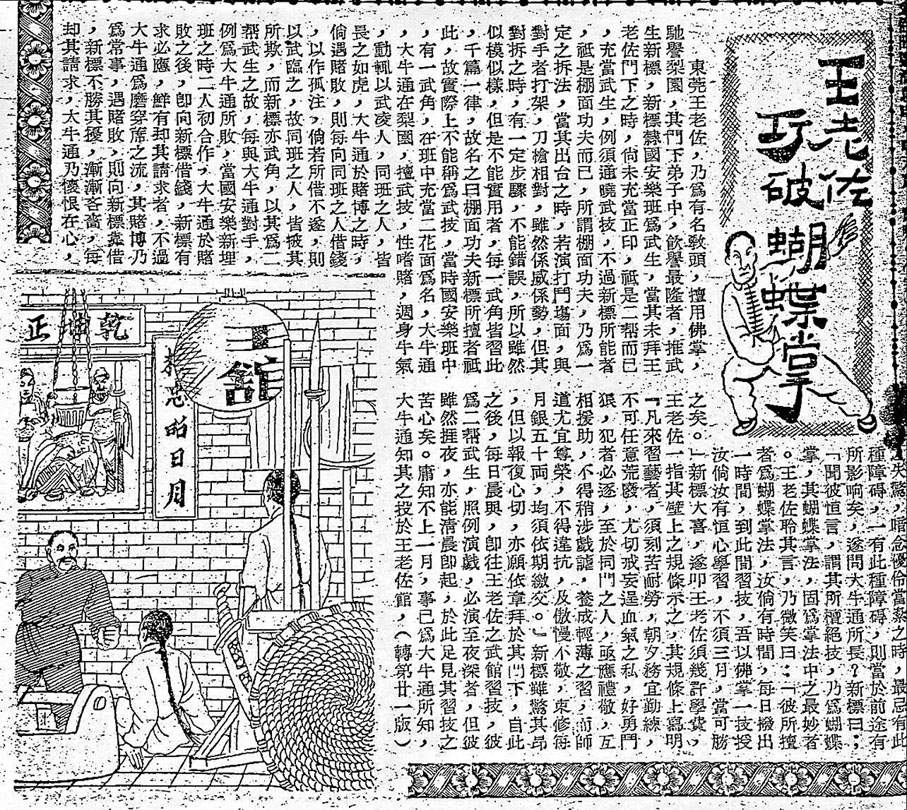 王老佐
巧破
蝴蝶掌
東莞王老佐，乃爲有名敎頭，擅用佛掌，
馳譽梨園，其門下弟子中，飮譽最隆者，推武
生新標，新標隸國安樂班爲武生，當其未拜王
老佐門下之時，尙未充當正印，祗是二幫而已
，充當武生，例須通曉武技，不過新標所能者
，祗是棚面功夫而已，所謂棚面功夫，乃爲一
定之拆法，當其出台之時，若演打鬥塲面，與
對手者打架，刀槍相對，雖然係威係勢，但其
對拆之時，有一定步驟，不能錯誤，所以雖然
似模似樣，但是不能實用者，每一武角皆習此
，千篇一律，故名之曰棚面功夫新標所擅者祗
此，故實際上不能稱爲武技，當時國安樂班中
，有一武角，在班中充當二花面爲名，大牛通
，大牛通在梨園，擅武技，性嗜賭，週身牛氣
，動輒以武凌人，同班之人，皆
畏之如虎，大牛通於賭博之時，
倘遇賭敗，則每向同班之人借錢
，以作孤注，倘若所借不遂，則
以武臨之，故同班之人，皆被其
所欺，而新標亦武角，以其爲二
幫武生之故，每與大牛通對手，
例爲大牛通所敗，當國安樂新埋
班之時二人初合作，大牛通於賭
敗之後，卽向新標借錢，新標有
求必應，鮮有却其請求者，不過
大牛通爲磨穿席之流，其賭博乃
爲常事，遇賭敗，則向新標靠借
，新標不勝其擾，漸漸吝嗇，每
却其請求，大牛通乃懷恨在心，
失驚，暗念優伶當紮之時，最忌有此
種障碍，一有此種障碍，則當於前途有
所影响矣，遂問大牛通所長？新標曰：
「聞彼恒言，謂其所擅絕技，乃爲蝴蝶
掌，其蝴蝶掌法，固爲掌法中之最妙者
。王老佐聆其言，乃微笑曰：「彼所擅
者爲蝴蝶掌法，汝倘有時間，每日撥出
一時間，到此間習技，吾以佛掌一技授
汝倘汝有恒心學習，不須三月，當可勝
之矣。」新標大喜，遂叩王老佐須幾許學費，
王老佐一指其壁上之規條示之，其規條上寫明
「凡來習藝者，須刻苦耐勞，朝夕務宜勤練，
不可任意荒廢，尤切戒妄逞血氣之私，好勇鬥
狠，犯者必逐，至於同門之人，亟應禮敬，互
相援助，不得稍涉戲謔，養成輕薄之習，而師
道尤宜尊榮，不得違抗，及傲慢不敬，束修每
月銀五十両，均須依期繳交。」新標雖驚其昻
，但以報復心切，亦願依章拜於其門下，自此
之後，每日晨興，卽往王老佐之武館習技，彼
爲二幫武生，照例演戲，必演至夜深者，但彼
雖然捱夜，亦能淸晨卽起，於此足見其習技之
苦心矣。庸知不上一月，事已爲大牛通所知，
大牛通知其之投於王老佐館，（轉第廿一版）
乾坤正
忠昭日月
王館